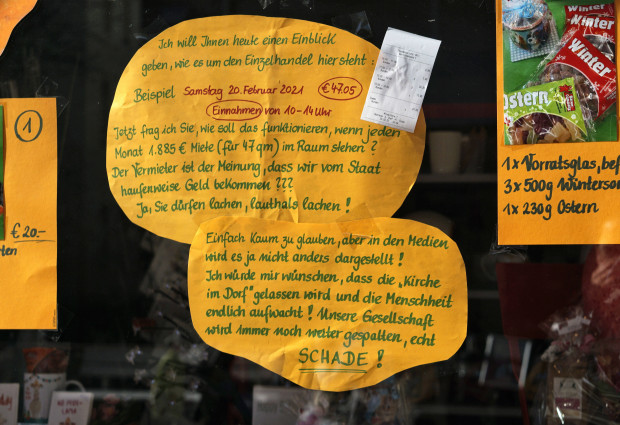 Ich will Ihnen heute einen Einblick
geben, wie es um den Einzelhandel hier steht:
Beispiel Samstag 20. Februar 2021 €47.05
Einnahmen von 10-14 Uhr
Jetzt frag ich Sie, wie soll das funktionieren, wenn jeden
Monat 1.885 € Miete (für 47 qm) im Raum stehen?
Der Vermieter ist der Meinung, dass wir vom Staat
haufenweise Geld bekommen ???
Ja, Sie dürfen lachen, lauthals lachen!
Einfach Kaum zu glauben, aber in den Medien
wird es ja nicht anders dargestellt!
Ich würde mir wünschen, dass die „Kirche
im Dorf" gelassen wird und die Menschheit
endlich aufwacht! Unsere Gesellschaft
wird immer noch weiter gespalten, echt
SCHADE!
1
€ 20.-
Winter
Winter
Winter
Ostern
1 x Vorratsglas, bef
3 x 500g Winterson
1 x 230g Ostern